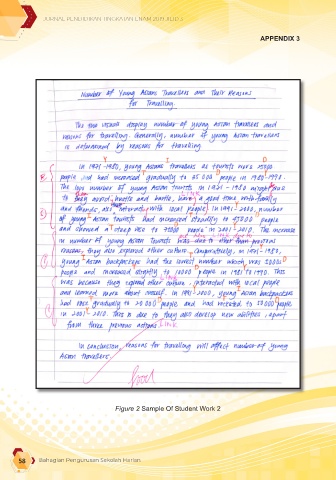 JURNAL PENDIDIKAN TINGKATAN ENAM
APPENDIX 3
Number of Young Asians Travellers and Their Reasons
for Travelling.
The two visuals display number of young Asian travellers and
reasons for travelling. Generally, number of young Asian travellers
is determined by reasons for travelling
In 1971-1980, young Asians travellers as tourists were
people and had increased gradually to 35 000 people in 1980-1990.
The low number of young Asian tourists in 1971-1980 was
to avoid hustle and bustle, have a good time with family
and friends, and interact with local people. In 1991-2000, number
of young Asian tourists had increased steadily to 45000 people
and showed a steep rise to 75000 people in 2001-2010. The increase
in number of young Asian tourists was due to other than previous
reasons, they also explored other culture. Comparatively, in 1971-1980,
young Asian backpackers had the lowest number which was 5000
people and increased slightly to 10000 people in 1981 to 1990. This
was because they explored other culture, interacted with local people
and learned more about oneself. In 1991-2000, young Asian backpackers
had rose gradually to 20 000 people and had rocketed to 50000 people
in 2001-2010. This is due to they also develop new abilities, apart
from three previous actions. Link
In conclusion, reasons for travelling will affect number of young
Asian travellers.
Figure 2 Sample Of Student Work 2
58 Bahagian Pengurusan Sekolah Harian